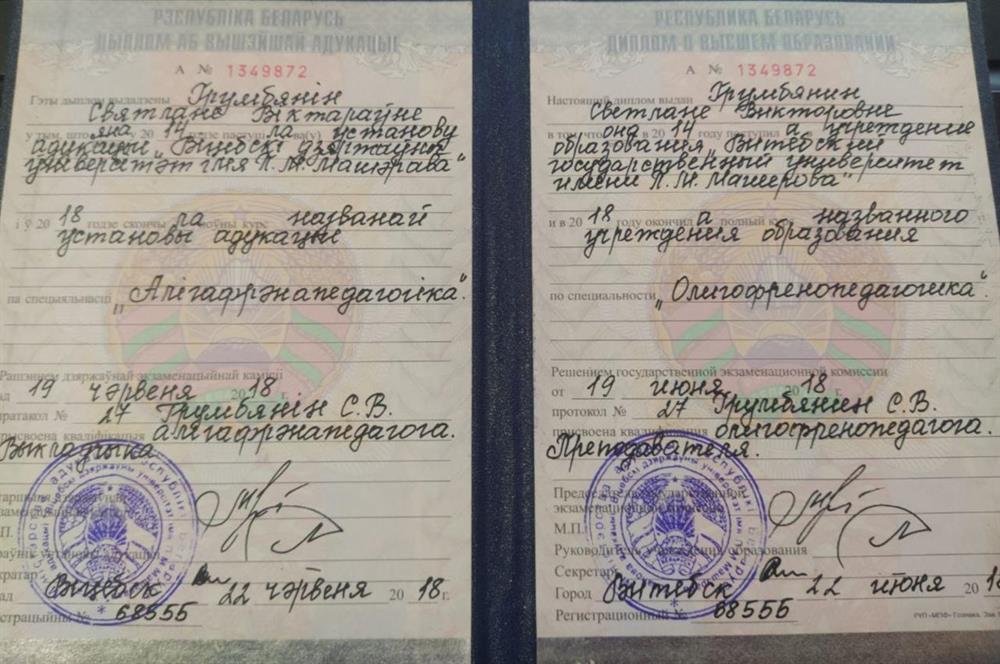 РЭСПУБЛІКА БЕЛАРУСЬ
ДЫПЛОМ АБ ВЫШЭЙШАЙ АДУКАЦЫІ
А № 1349872
Гэты дыплом выдадзены Грумбянін
Святлане Віктараўне
у тым, што яна у 20 14 годзе паступ ла ва(у) установу
адукацыі „Віцебскі дзяржаўны
ўніверсітэт імя П. М. Машэрава"
і ў 20 18 годзе скончы ла поўны курс названай
установы адукацыі
па спецыяльнасці „Алігафрэнапедагогіка".
Рашэннем дзяржаўнай экзаменацыйнай камісіі
ад 19 чэрвеня 20 18 г.
пратакол № 27 Грумбянін С.В.
прысвоена кваліфікацыя алігафрэнапедагога.
Выкладчыка
Старшыня дзяржаўнай
экзаменацыйнай
М.П.
Кіраўнік установы адукацыі
Сакратар
Горад Віцебск 22 чэрвеня 20 18 г.
Рэгістрацыйны № 68556
РЕСПУБЛИКА БЕЛАРУСЬ
ДИПЛОМ О ВЫСШЕМ ОБРАЗОВАНИИ
А № 1349872
Настоящий диплом выдан Грумбянин
Светлане Викторовне
в том, что она в 20 14 году поступил а в учреждение
образования „Витебский
государственный университет
имени П. М. Машерова"
и в 20 18 году окончил а полный курс названного
учреждения образования
по специальности „Олигофренопедагогика".
Решением государственной экзаменационной комиссии
от 19 июня 20 18 г.
протокол № 27 Грумбянин С.В.
присвоена квалификация олигофренопедагога.
Преподавателя.
Председатель государственной
экзаменационной комиссии
М.П.
Руководитель учреждения образования
Секретарь
Город Витебск 22 июня 20 1
Регистрационный № 68556